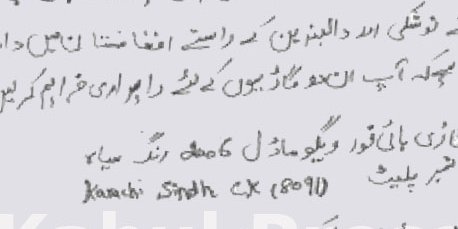 نوشکی اور دالبندین کے راستے افغانستان میں
آپ ان دو گاڑیوں کے لئے راہداری فراہم کریں
گاڑی ہائی فور ویگو ماڈل 2006 رنگ سیاہ
نمبر پلیٹ Karachi Sindh CK (8091)